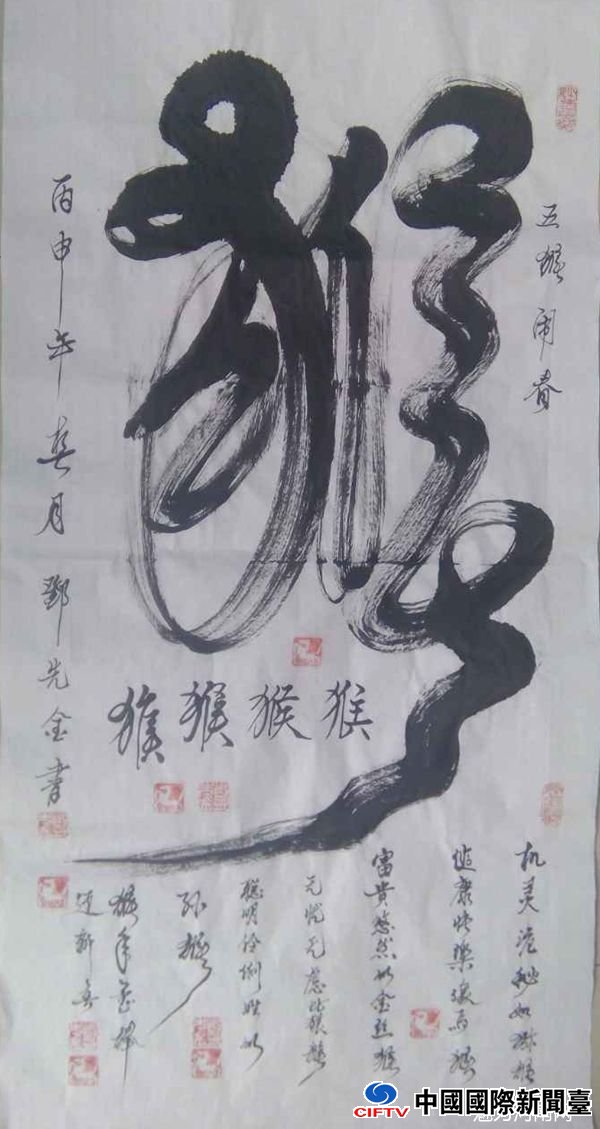 五猴闹春
猴
猴猴猴猴
丙申年春月鄧先金書
机灵诡秘如猕猴
健康快樂马猴
富貴悠然似金丝猴
无忧无虑
聪明伶俐胜似
孙猴
猴年挥
迎新春
CIFTV 中國國際新聞臺